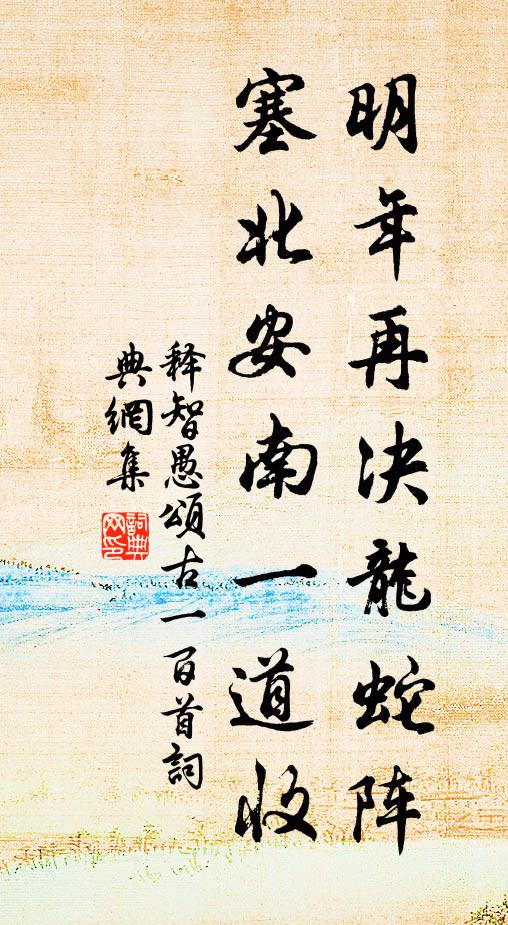 明年再决龍蛇阵
塞北安南一道收
释智愚頌古一百首詞
典網集
詞典
网印